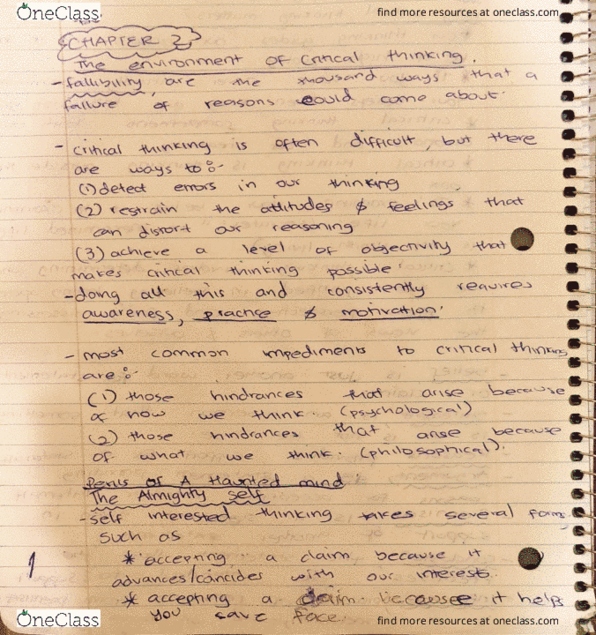 OneClass
find more resources at oneclass.com
CHAPTER 2
The environment of Critical thinking.
- fallibility, are the thousand ways that a
failure of reasons could come about.
- critical thinking is often difficult, but there
are ways to:-
(1) detect errors in our thinking
(2) restrain the attitudes & feelings that
can distort our reasoning
(3) achieve a level of objectivity that
makes critical thinking possible.
- doing all this and consistently requires
awareness, practise & motivation.
- most common impediments to critical thinking
are:-
(1) those hindrances that arise because
of how we think. (psychological)
(2) those hindrances that arise because
of what we think. (philosophical).
Perils of A Haunted mind
The Almighty self
- self interested thinking takes several forms
such as
* accepting a claim because it
advances/coincides with our interests.
* accepting a claim because it helps
you save face
1
OneClass
find more resources at oneclass.com